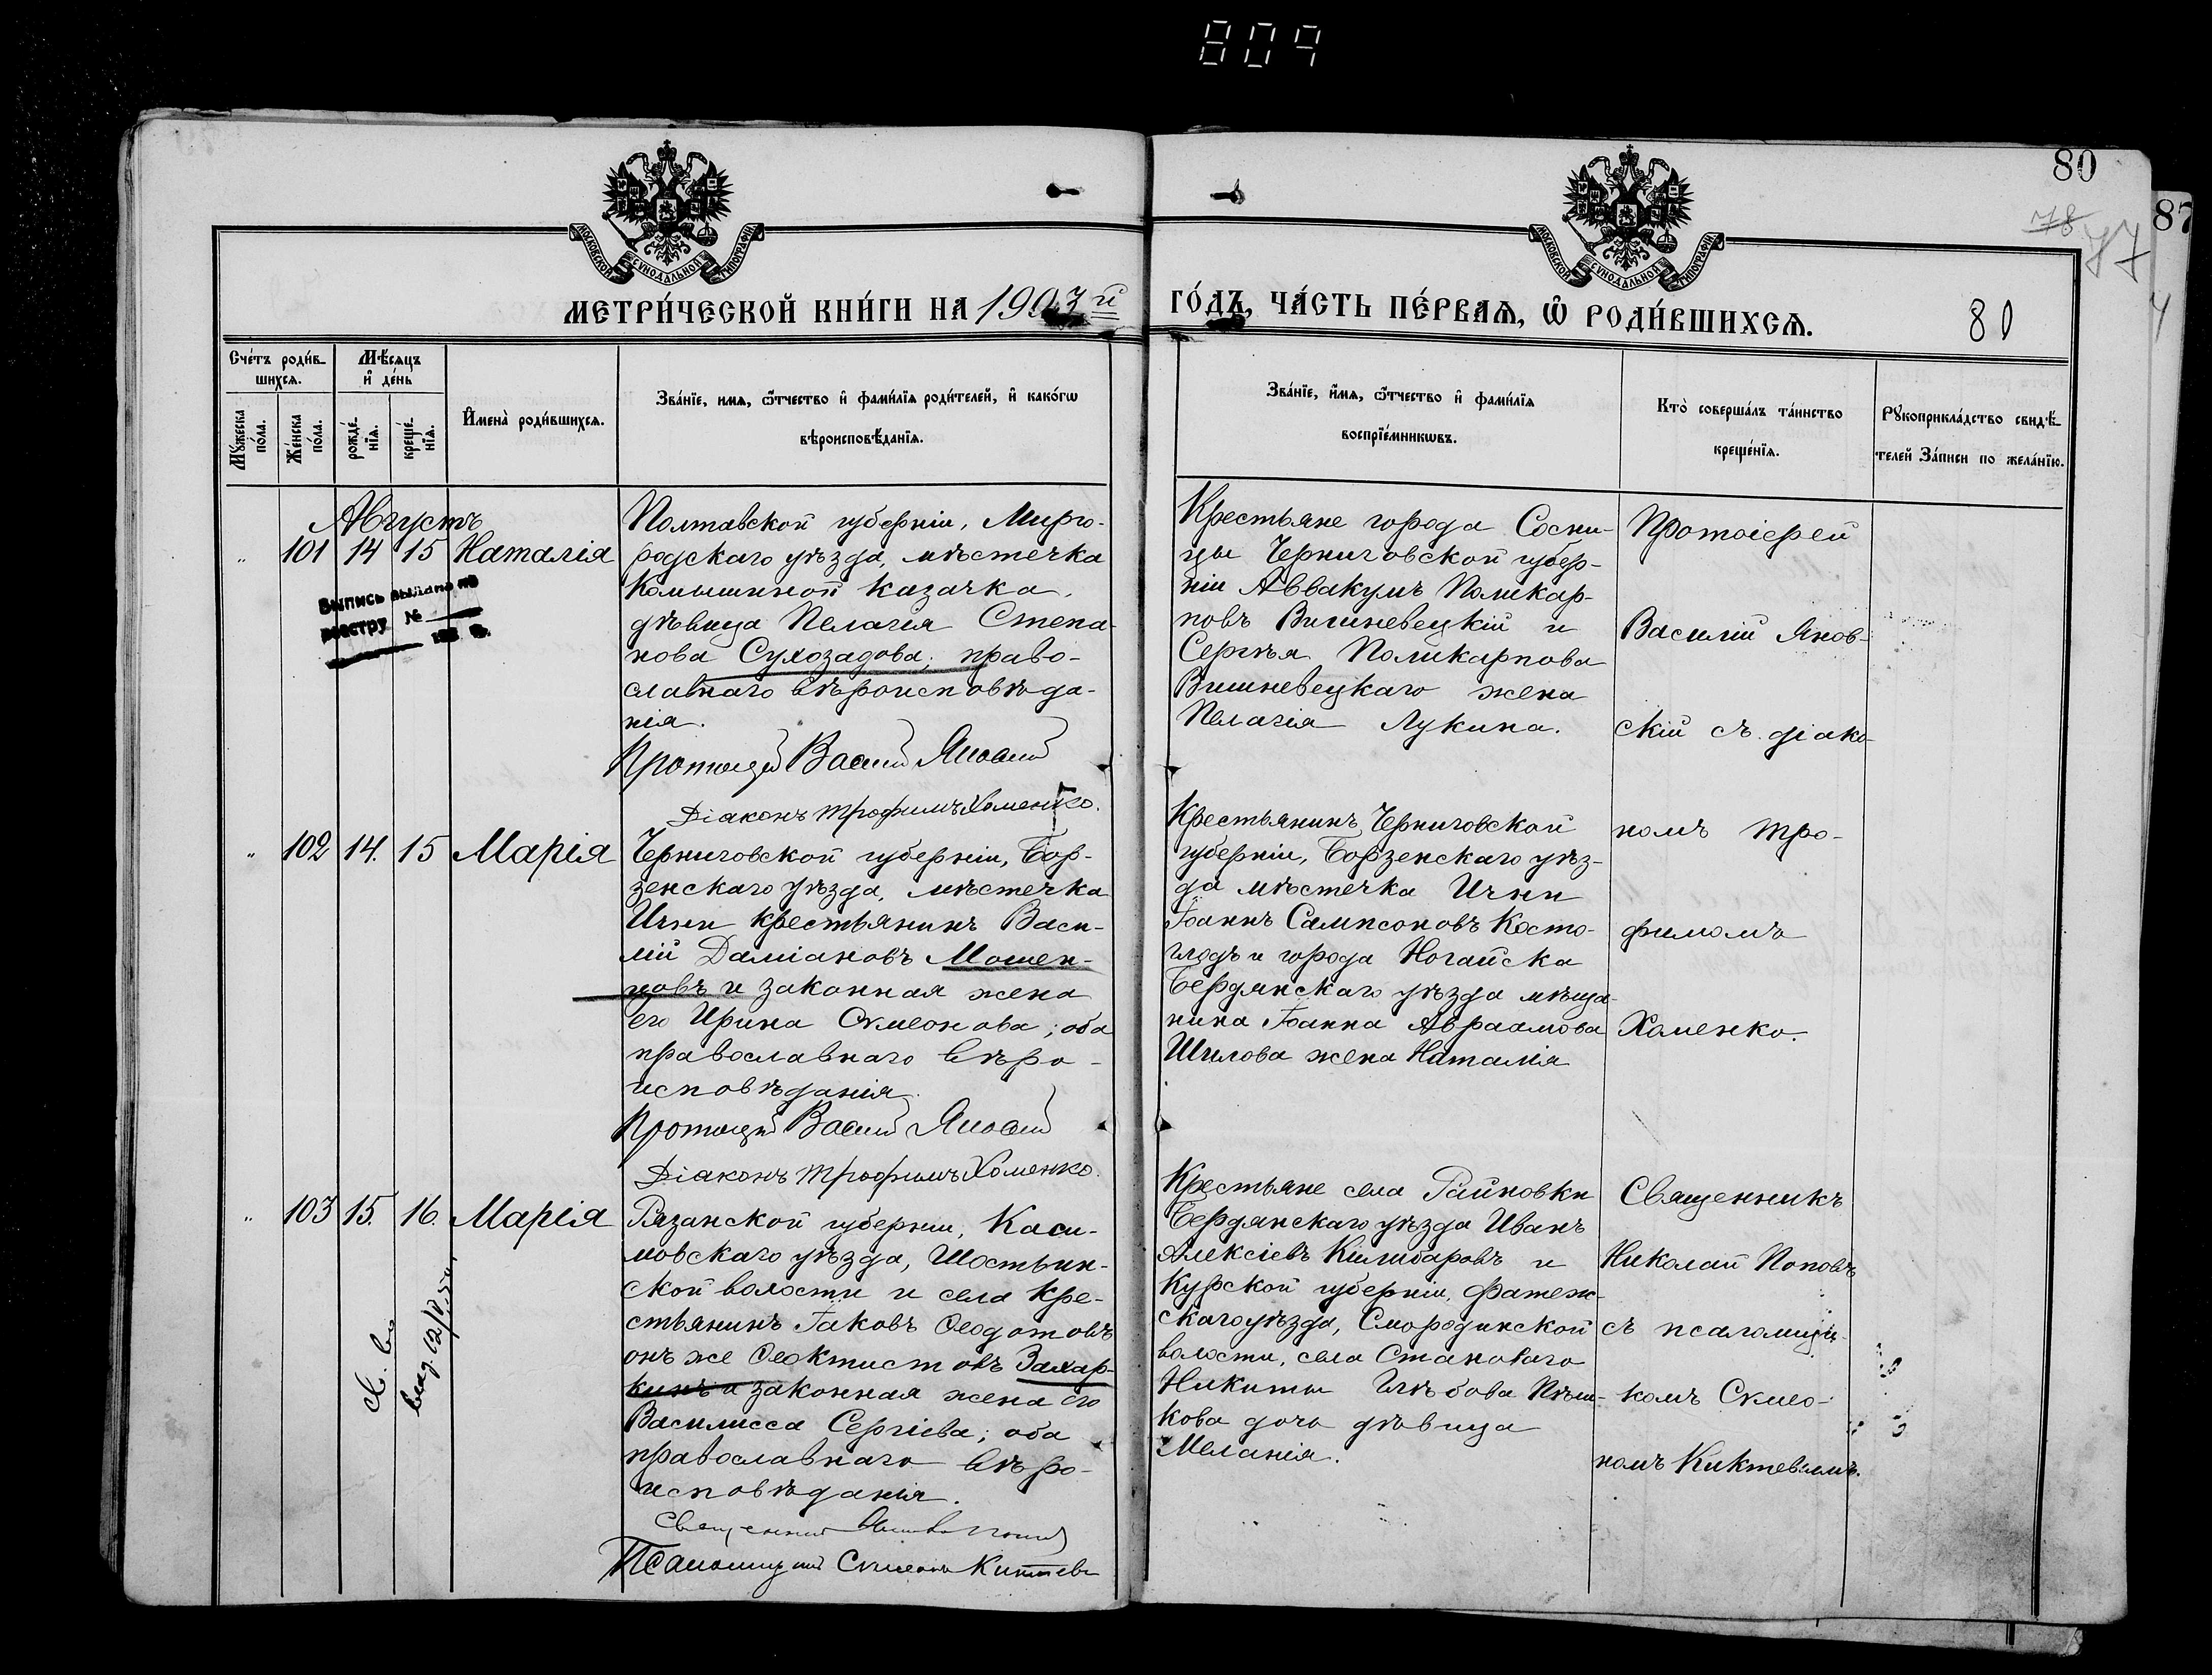 809
80
78
77
87
МОСКОВСКОЙ СУНОДАЛЬНОЙ ТИПОГРАФІИ
МОСКОВСКОЙ СУНОДАЛЬНОЙ ТИПОГРАФІИ
МЕТРИ́ЧЕСКОЙ КНИ́ГИ НА 1903 й
ГО́ДЪ, ЧА́СТЬ ПЕ́РВАѦ, Ѡ҆ РОДИ́ВШИХСѦ.
80
Сче́тъ роди́в-
шихсѧ.
Мꙋ́жеска
по́ла.
Же́нска
по́ла.
Мѣ́сяцъ
и҆ де́нь
рожде́-
нїѧ.
креще́-
нїѧ.
И҆мена̀ роди́вшихсѧ.
Зва́нїе, имѧ, ѻ҆́тчество и҆ фами́лїѧ роди́телей, и҆ како́гѡ
вѣроисповѣ́данїѧ.
Зва́нїе, и҆́мѧ, ѻ҆́тчество и҆ фами́лїѧ
воспрїе́мникѡвъ.
Кто̀ соверша́лъ та́инство
креще́нїѧ.
Рꙋкоприкла́дство свидѣ́-
телей За́писи по жела́нїю.
Августъ
" 101 14 15 Наталія
Выпись выдана по
реестру №
Полтавской губерніи, Мирго-
родскаго уѣзда, мѣстечка
Комышиной казачка
дѣвица Пелагія Степа-
нова Сухозадова; право-
славнаго вѣроисповѣда-
нія.
Протоіерей Василій Яновскій
Діаконъ Трофимъ Хоменко.
Крестьяне города Сосни-
цы Черниговской губер-
ніи Аввакумъ Поликар-
повъ Вишневецкій и
Сергѣя Поликарпова
Вишневецкаго жена
Пелагія Лукина.
Протоіерей
Василій Янов-
скій съ діако-
номъ Тро-
фимомъ
Хоменко.
" 102 14. 15 Марія
Черниговской губерніи, Бор-
зенскаго уѣзда, мѣстечка
Ични крестьянинъ Васи-
лій Даміановъ Мошен-
цовъ и законная жена
его Ирина Сѵмеонова; оба
православнаго вѣро-
исповѣданія.
Протоіерей Василій Яновскій
Діаконъ Трофимъ Хоменко.
Крестьянинъ Черниговской
губерніи, Борзенскаго уѣз-
да мѣстечка Ични
Іоаннъ Сампсоновъ Косто-
глодъ и города Ногайска
Бердянскаго уѣзда мѣща-
нина Іоанна Авраамова
Шилова жена Наталія
" 103 15. 16. Марія
Рязанской губерніи, Каси-
мовскаго уѣзда, Шостьин-
ской волости и села кре-
стьянинъ Іаковъ Ѳеодотовъ
онъ же Ѳеоктистовъ Захар-
кинъ и законная жена его
Василисса Сергіева; оба
православнаго вѣро-
исповѣданія.
Священникъ Николай Поповъ
Псаломщикъ Сѵмеонъ Киктевъ
Крестьяне села Райновки
Бердянскаго уѣзда Иванъ
Алексіевъ Килимбаровъ и
Курской губерніи, Фатеж-
скаго уѣзда, Смородинской
волости, села Становаго
Никиты Глѣбова Пѣш-
кова дочь дѣвица
Меланія.
Священникъ
Николай Поповъ
съ псаломщи-
комъ Сѵмео-
номъ Киктевымъ.